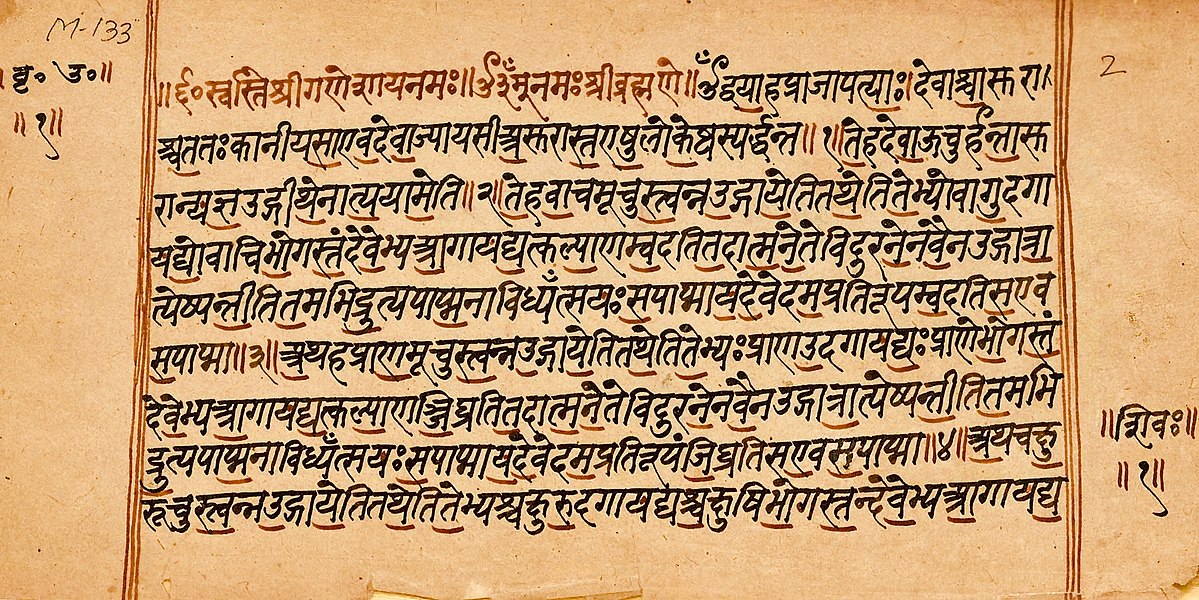 M-133
॥ बृ॰ उ॰॥
॥ १॥
2
॥ ६॰ स्वस्ति श्रीगणेशायनमः॥ ॐ नमः श्रीब्रह्मणे॥ ॐ द्वयाहप्राजापत्याः। देवाश्चासुरा।
श्चततः कानीयसाएवदेवाज्यायसीअसुरास्तएषुलोकेष्वस्पर्द्धन्त॥ १॥ तेहदेवाऊचुर्हन्तासु
रान्यज्ञउद्गीथेनात्ययामेति॥ २॥ तेहवाचमूचुस्त्वन्नउद्गायेतितथेतितेभ्योवागुदगा
यद्योवाचिभोगस्तंदेवेभ्यआगायद्यत्कल्पाणम्वदतितदात्मनेतेविदुरनेनवैनउद्गात्रा
त्येष्यन्तीतितमभिद्रुत्यपाप्मनाविध्यँत्सयः सपाप्मायदेवेदमप्रतिरूपम्वदतिसएव
सपाप्मा॥ ३॥ अथहप्राणमूचुस्त्वन्नउद्गायेतितथेतितेभ्यः प्राणउदगायद्यः प्राणेभोगस्तं
देवेभ्यआगायद्यत्कल्पाणञ्जिघ्रतितदात्मनेतेविदुरनेनवैनउद्गात्रात्येष्यन्तीतितमभि
द्रुत्यपाप्मनाविध्यँत्सयः सपाप्मायदेवेदमप्रतिरूपंजिघ्रतिसएवसपाप्मा॥ ४॥ अथचक्षु
रूचुस्त्वन्नउद्गायेतितथेतितेभ्यश्चक्षुरुदगायद्यश्चक्षुषिभोगस्तन्देवेभ्यआगायद्य
॥ शिवः॥
॥ १॥